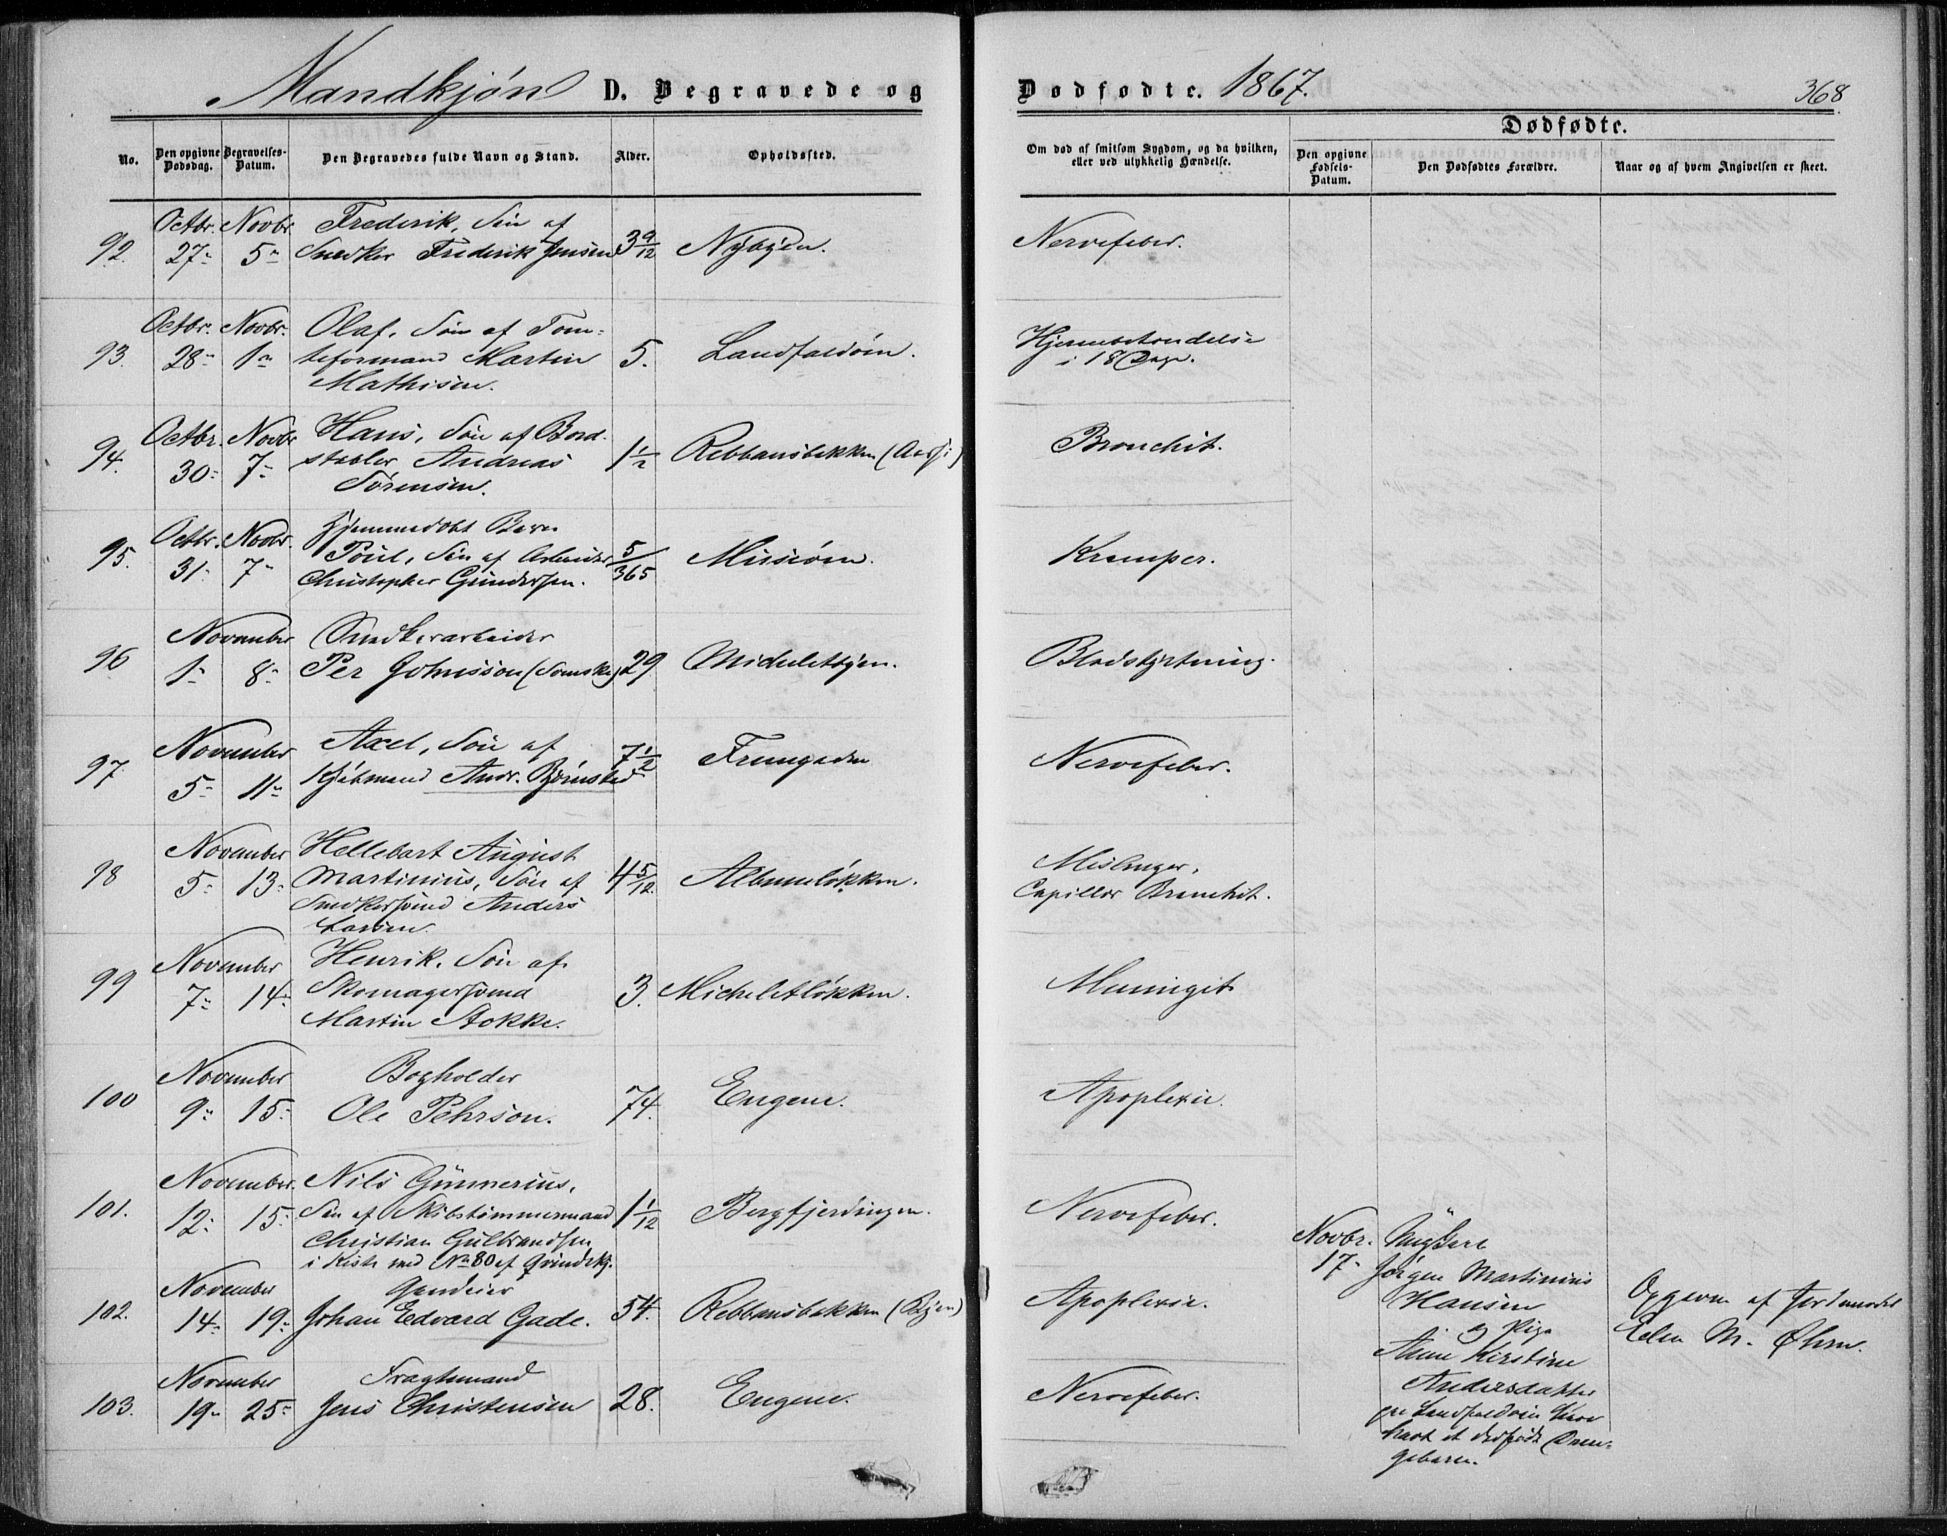 Mandkjøn D. Begravede og Dødfødte. 1867. 368
No. Den opgivne Dødsdag. Begravelses-Datum. Den Begravedes fulde Navn og Stand. Alder. Opholdssted. Om død af smitsom Sygdom, og da hvilken, eller ved ulykkelig Hændelse.
Dødfødte.
Den opgivne Fødsels-Datum. Den Dødfødtes Forældre. Naar og af hvem Angivelsen er skeet.
92. Octbr. 27 Novbr. 5 Frederik, Søn af
Snedker Frederik Jensen 3 9/12 Nybyen. Nervefeber.
93. Octbr. 28 Novbr. 1 Olaf, Søn af Tom-
teformand Martin
Mathisen. 5. Landfaldøen. Hjernebetændelse
i 18 Dage.
94. Octbr. 30 Novbr. 7 Hans, Søn af Bord-
stabler Andreas
Sørensen. 1 1/2 Rebbansbakken Bronchit.
95. Octbr. 31 Novbr. 7 Hjemmedøbt Barn
Poul, Søn af Arbeider
Christopher Gundersen. 5/365 Kramper.
96 November 1 8 Snedkerarbeider
Per Johnsson (Svensk) 29 Blodstyrtning.
97. November 5 11 Axel, Søn af
Kjøbmand Andr. Bjørnstad 7 1/2 Nervefeber.
98 November 5 13 Hellebart August
Martinius, Søn af
Snedkersvend Anders
Larsen. 4 5/12 Albumløkken. Meslinger,
Capillær Bronchit.
99 November 7 14 Henrik, Søn af
Skomagersvend
Martin Stokke. 3. Micheletløkken. Meningit
100 November 9 15 Bogholder
Ole Pehrson. 74. Engene. Apoplexie.
101. November 12 15 Nils Gunnerius,
Søn af Skibstømmermand
Christian Gulbrandsen
i Kiste med No 80 af Qvindekj. 1 1/12 Bergfjerdingen. Nervefeber.
102. November 14 19 Gaardeier
Johan Edvard Gade. 54. Rebbansbakken (Byen) Apoplexie.
103. November 19 25 Fragtemand
Jens Christensen 28. Engene. Nervefeber.
Novbr. 17 Ungkarl
Jørgen Martinius
Hansen
og Pige
Anne Kirstine
Andersdatter
paa Landfaldøen have
havt et dødfødt Dren-
gebarn.
Opgiven af Jordmoder
Elen M. Øhrn.